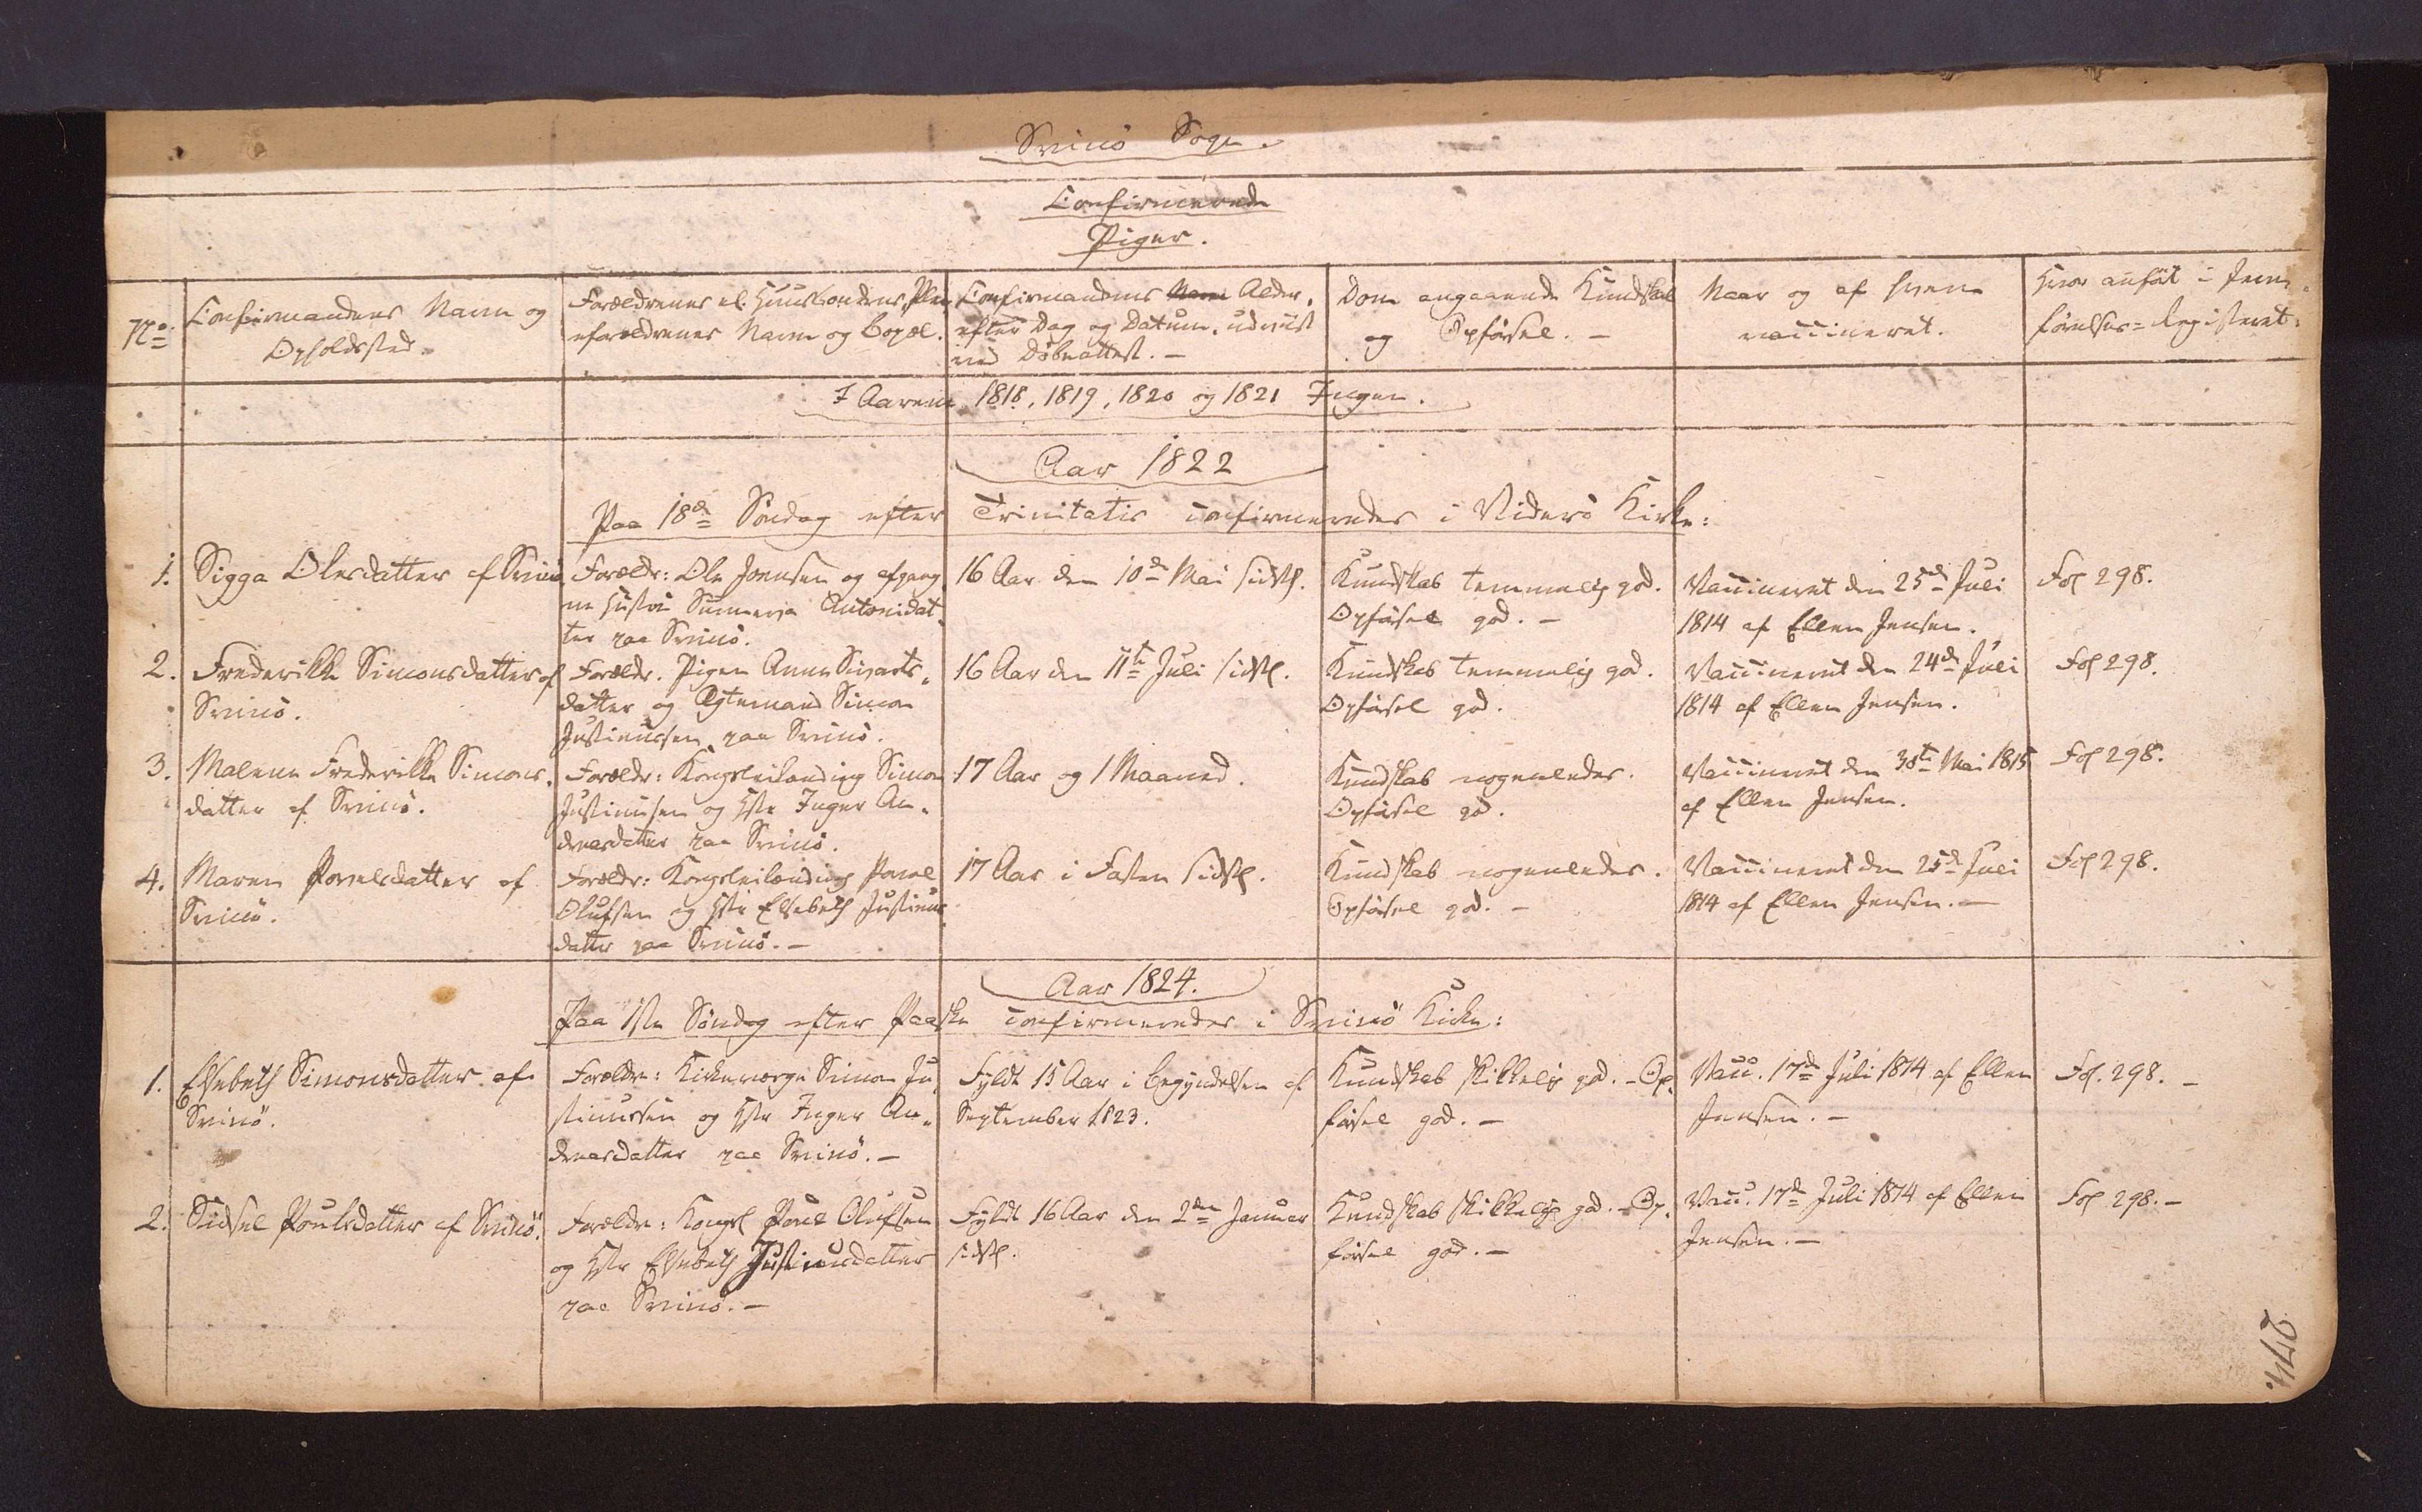 Svinö Sogn.
Confirmerede
Piger.
No.
Confirmandens Navn og
Opholdssted.
Forældrenes el. Huusbondens, Plei-
eforældrenes Navn og Bopæl.
Confirmandens Navn Alder,
efter Dag og Datum, udviist
ved Döbeattest. –
Dom angaaende Kundskab
og Opförsel. –
Naar og af hvem
vaccineret.
Hvor anfört i Jevn-
förelses=Registeret.
I Aarene 1818, 1819, 1820 og 1821 Ingen.
Aar 1822
Paa 18de Söndag efter Trinitatis confirmeredes i Viderö Kirke:
1. Sigga Olesdatter af Svinö
Forældr: Ole Joensen og afgang-
ne Hustru Sunneva Antonidat-
ter paa Svinö.
16 Aar den 10de Mai sidstl.
Kundskab temmelig god.
Opförsel god. –
Vaccineret den 25de Juli
1814 af Ellen Jensen.
Fol 298.
2. Frederikke Simonsdatter af
Svinö.
Forældr. Pigen Anne Sivarts-
datter og Ægtemand Simon
Justinussen paa Svinö.
16 Aar den 11te Juli sidstl.
Kundskab temmelig god.
Opförsel god.
Vaccineret den 24de Juli
1814 af Ellen Jensen.
Fol 298.
3. Malene Frederikke Simons-
datter af Svinö.
Forældr: Kongsleilænding Simon
Justinussen og Hstr Inger An-
dreasdatter paa Svinö.
17 Aar og 1 Maaned.
Kundskab nogenledes.
Opförsel god.
Vaccineret den 30te Mai 1815
af Ellen Jensen.
Fol 298.
4. Maren Povelsdatter af
Svinö.
Forældr: Kongsleilænding Povel
Olufsen og Hstr Elsebeth Justinus
datter paa Svinö. –
17 Aar i Fasten sidstl.
Kundskab nogenledes.
Opförsel god. –
Vaccineret den 25de Juli
1814 af Ellen Jensen. –
Fol 298.
Aar 1824.
Paa 1ste Söndag efter Paaske confirmeredes i Svinö Kirke:
1. Elsebeth Simonsdatter af
Svinö.
Forældre: Kirkeværge Simon Ju
stinussen og Hstr Inger An-
dreasdatter paa Svinö. –
Fyldt 15 Aar i Begyndelsen af
September 1823.
Kundskab skikkelig god. – Op-
försel god. –
Vacc. 17de Juli 1814 af Ellen
Jensen. –
Fol. 298. –
2. Sidsel Poulsdatter af Svinö.
Forældre: Kongsl Poul Olufsen
og Hstr Elsebeth Justinusdatter
paa Svinö. –
Fyldt 16 Aar den 2den Januar
sidstl.
Kundskab skikkelig god. – Op-
försel god. –
Vacc. 17de Juli 1814 af Ellen
Jensen. –
Fol 298. –
274.